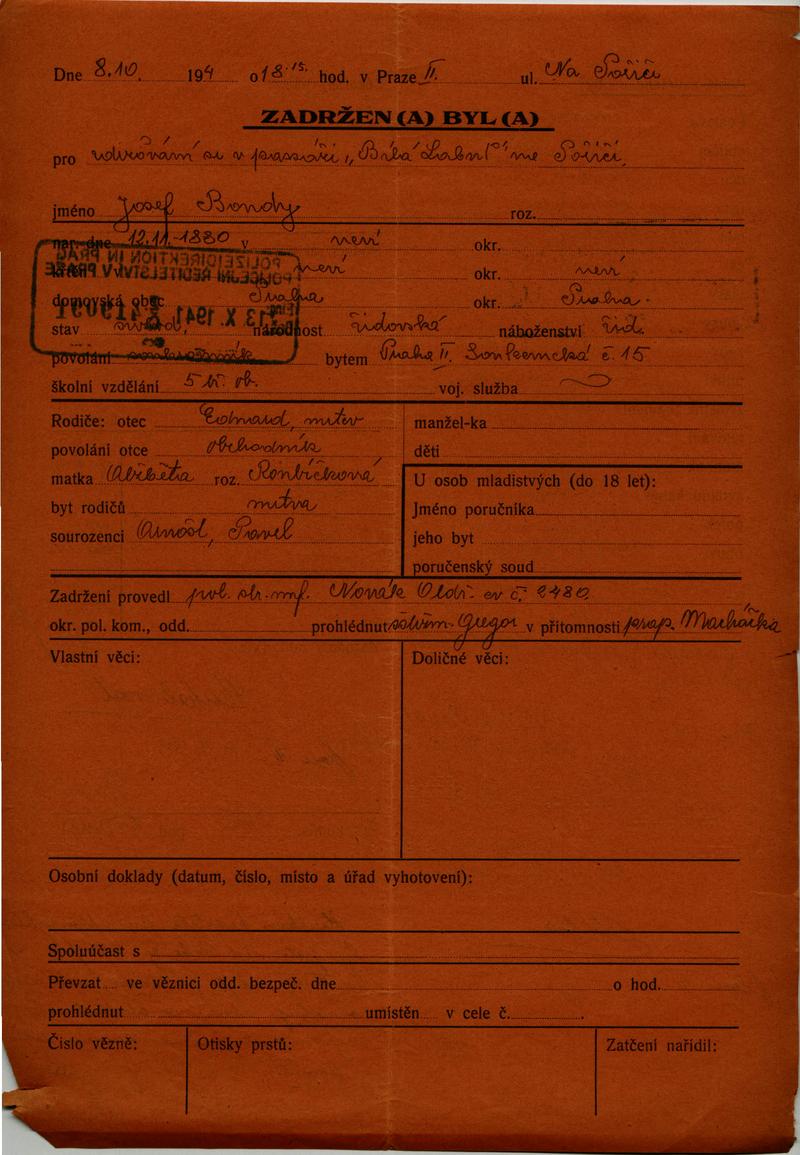 Dne 8.10. 194 o 18·15. hod. v Praze II. ul. Na Poříčí
ZADRŽEN (A) BYL (A)
pro v „Bílá Labuť" na Poříčí
jméno Josef Bondy roz.
nar. dne 12.11.1880 v není okr.
není okr. není
domovská obec Praha okr. Praha.
stav národnost židovská náboženství žid.
povolání bytem Praha II. Soukenická č. 15
školní vzdělání 5 tř. ob. voj. služba
POLIZEIDIREKTION IN PRAG
POLICEJNÍ ŘEDITELSTVÍ V PRAZE
13 X. 1941
Rodiče: otec Edmund, mrtev
povolání otce obchodník
matka Alžběta roz.
byt rodičů mrtva
sourozenci Arnošt, Pavel
manžel-ka
děti
U osob mladistvých (do 18 let):
Jméno poručníka
jeho byt
poručenský soud
Zadržení provedl pol. str. Novák Oldř. ev č. 2480
okr. pol. kom., odd. prohlédnut Gregor v přítomnosti prap. Machačka
Vlastní věci: Doličné věci:
Osobní doklady (datum, číslo, místo a úřad vyhotovení):
Spoluúčast s
Převzat ve věznici odd. bezpeč. dne o hod.
prohlédnut umístěn v cele č.
Číslo vězně: Otisky prstů: Zatčení nařídil: